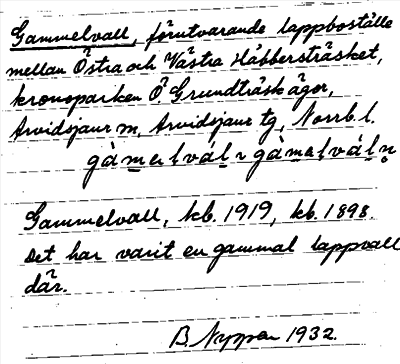 Gammelvall, förutvarande lappboställe
mellan Östra och Västra Habbersträsket,
kronoparken Ö. Grundträskåger,
Arvidsjaur sn, Arvidsjaur tg, Norrb. l.
gàmalvál ~ gàmalváln
Gammelvall, kb. 1919, kb. 1898.
Det har varit en gammal lappvall
där.
B. Nyppen 1932.